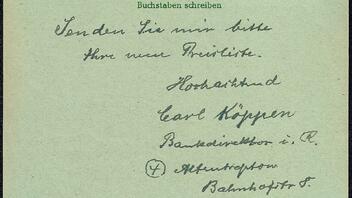 Buchstaben schreiben
Senden Sie mir bitte
Ihre neue Preisliste.
Hochachtend
Carl Köppen
Bankdirektor i. R.
4 Altentreptow
Bahnhofstr 8.